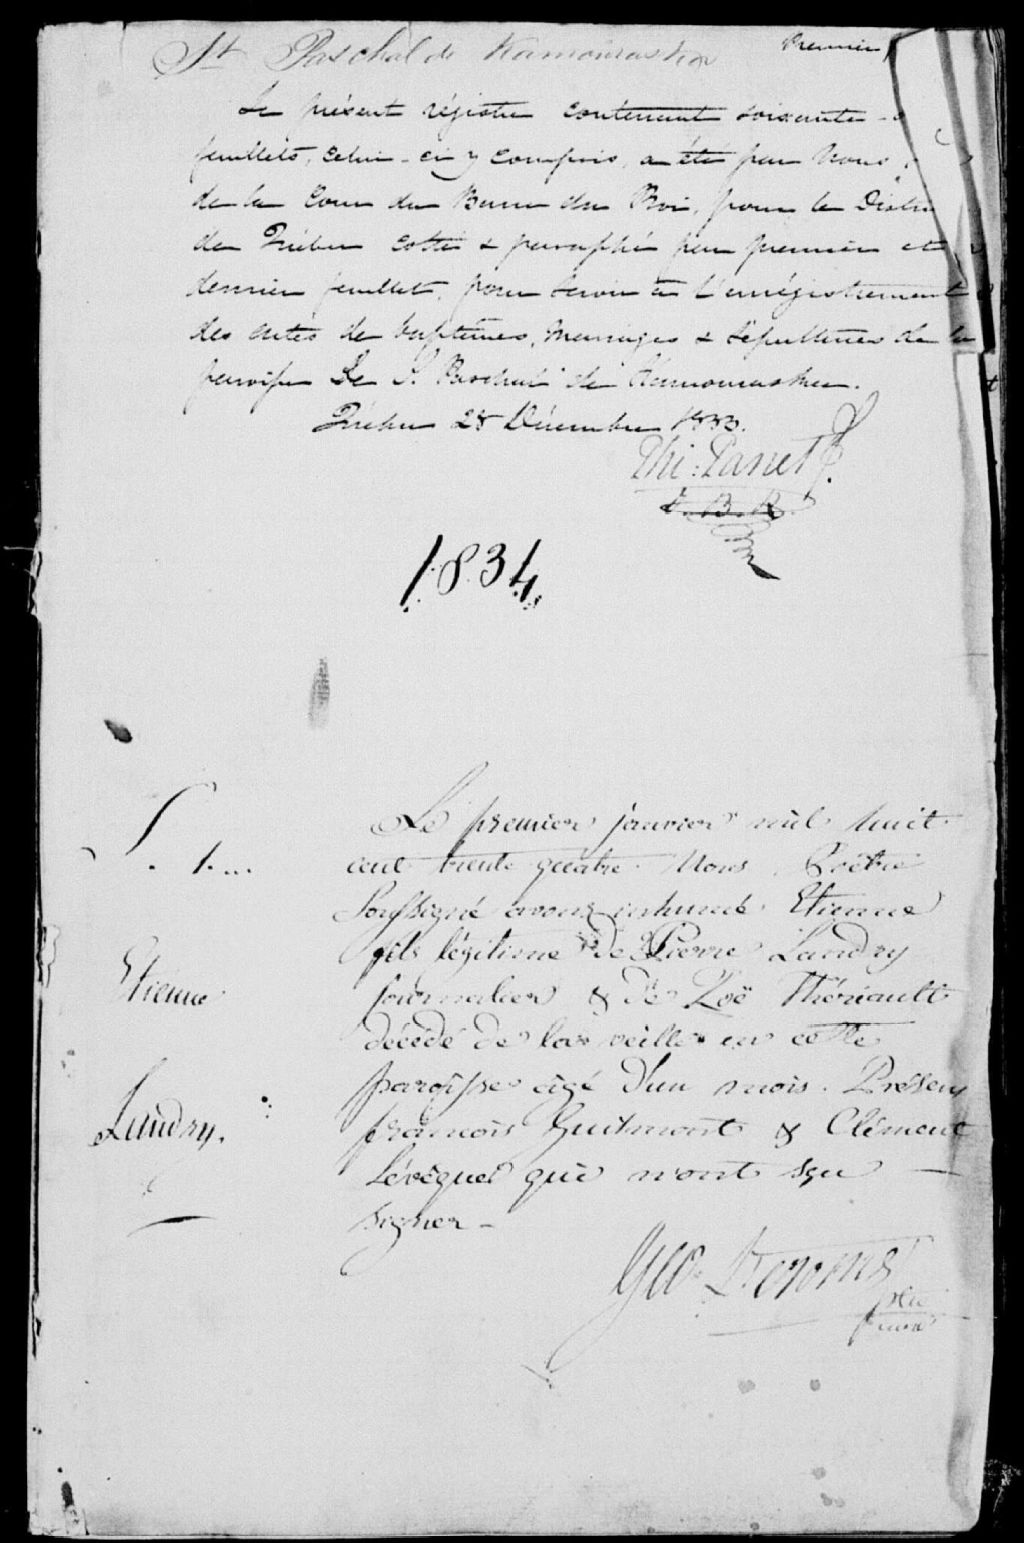 St Paschal de Kamouraska
Premier
Le présent régistre contenant soixante
feuillets, celui-ci y compris, a été par Nous,
de la Cour du Banc du Roi, pour le Distri
de Québec cotté & paraphé par premier et
dernier feuillet, pour servir à l'enrégistrement
des actes de baptêmes, mariages & sépultures de la
paroisse de St. Paschal de Kamouraska.
Québec 28 Décembre 1833.
Phi: Panet J.
C. B. R.
1834
S. 1...
Etienne
Landry.
Le premier janvier mil huit
cent trente quatre Nous Prêtre
Soussigné avons inhumé Etienne
fils légitime de Pierre Landry
journalier & de Zoë Thériault
décédé de la veille en cette
paroisse âgé d'un mois. Présens
françois Guilmont & Clément
Lévêque qui n'ont sçu
signer -
Ptre
curé